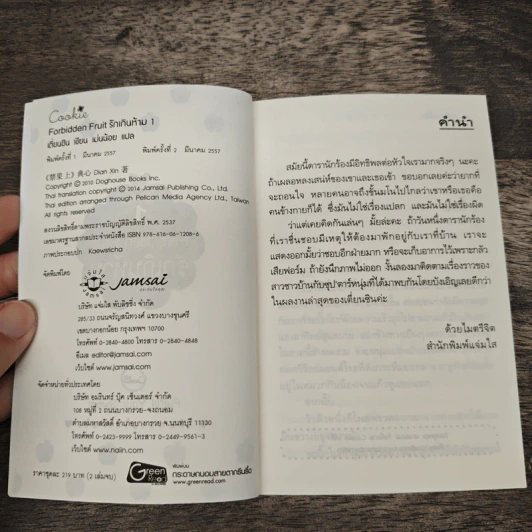 Cookie
Forbidden Fruit รักเกินห้าม 1
เตี่ยนซิน เขียน เม่นน้อย แปล
พิมพ์ครั้งที่ 1 มีนาคม 2557 พิมพ์ครั้งที่ 2 มีนาคม 2557
《禁果上》典心 Dian Xin 著
Copyright © 2013 Doghouse Books Inc.
Copyright © 2014 Jamsai Publishing Co., Ltd.
Thai edition arranged through Pelican Media Agency Ltd., Taiwan
All rights reserved
สงวนลิขสิทธิ์ตามพระราชบัญญัติลิขสิทธิ์ พ.ศ. 2537
เลขมาตรฐานสากลประจำหนังสือ ISBN 978-616-06-1208-6
ภาพประกอบปก Kaewsricha
จัดพิมพ์โดย
jamsai
บริษัท แจ่มใส พับลิชชิ่ง จำกัด
285/33 ถนนจรัญสนิทวงศ์ แขวงบางขุนศรี
เขตบางกอกน้อย กรุงเทพฯ 10700
โทรศัพท์ 0-2840-4800 โทรสาร 0-2840-4848
อีเมล editor@jamsai.com
เว็บไซต์ www.jamsai.com
จัดจำหน่ายทั่วประเทศโดย
บริษัท อมรินทร์ บุ๊ค เซ็นเตอร์ จำกัด
108 หมู่ที่ 2 ถนนบางกรวย-จงถนอม
ตำบลมหาสวัสดิ์ อำเภอบางกรวย จ.นนทบุรี 11130
โทรศัพท์ 0-2423-9999 โทรสาร 0-2449-9561-3
เว็บไซต์ www.naiin.com
ราคาชุดละ 219 บาท (2 เล่มจบ)
Green Read
พิมพ์บน
กระดาษถนอมสายตากรีนรี้ด
www.greenread.com
คำนำ
สมัยนี้ดารานักร้องมีอิทธิพลต่อหัวใจเรามากจริงๆ นะคะ
ถ้าเผลอหลงเสน่ห์ของเขาและเธอเข้า ขอบอกเลยค่ะว่ายากที่
จะถอนใจ หลายคนอาจถึงขั้นมโนไปไกลว่าเขาหรือเธอคือ
คนข้างกายก็ได้ ซึ่งมันไม่ใช่เรื่องแปลก และมันไม่ใช่เรื่องผิด
ว่าแต่เคยคิดกันเล่นๆ มั้ยล่ะคะ ถ้าวันหนึ่งดารานักร้อง
ที่เราชื่นชอบมีเหตุให้ต้องมาพักอยู่กับเราที่บ้าน เราจะ
แสดงออกมั้ยว่าชอบอีกฝ่ายมาก หรือจะเก็บอาการไว้เพราะกลัว
เสียฟอร์ม ถ้ายังนึกภาพไม่ออก งั้นลองมาติดตามเรื่องราวของ
สาวชาวบ้านกับซุปตาร์หนุ่มที่ได้มาพบกันโดยบังเอิญเลยดีกว่า
ในผลงานล่าสุดของเตี่ยนซินค่ะ
ด้วยไมตรีจิต
สำนักพิมพ์แจ่มใส